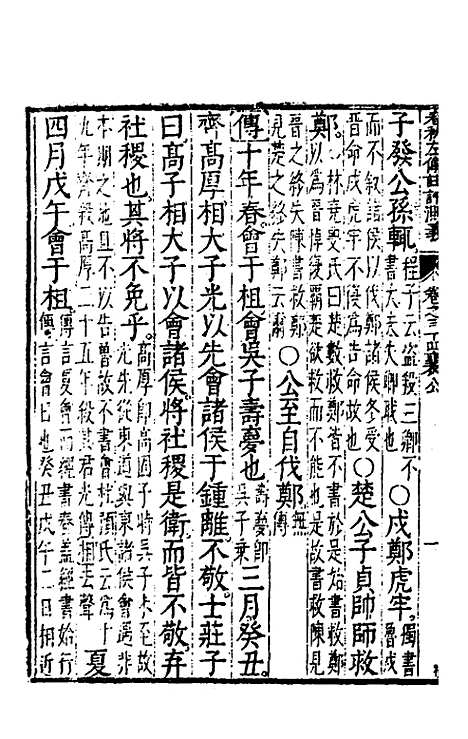 春秋左傳註評測義 卷之三十四 襄公 一
子發公孫輒程子云盜殺三卿不書大夫失卿職也○戍鄭虎牢獨書魯戍
而不敘諸侯以伐鄭諸侯各受晉命戍虎牢不復為告命故也○楚公子貞帥師救
鄭林堯叟氏曰楚救鄭皆不書於是始書救鄭以為晉悼復楚欲救而不能也是故書救陳見
晉之終失陳書救鄭見楚之終失鄭云爾○公至自伐鄭無傳
傳十年春會于柤會吳子壽夢也壽夢即吳子乘三月癸丑
齊高厚相大子光以先會諸侯于鍾離不敬士莊子
曰高子相大子以會諸侯將社稷是衛而皆不敬棄
社稷也其將不免乎高厚即高固子時吳子未至故光先從東道與東諸侯會遇非
本期之地且不以告魯故不書會顏氏云為十九年齊殺高厚二十五年弒其君光傳相去聲夏
四月戊午會于柤傳言夏會而經書春蓋經書始行傳言會日也癸丑戊午二日相近